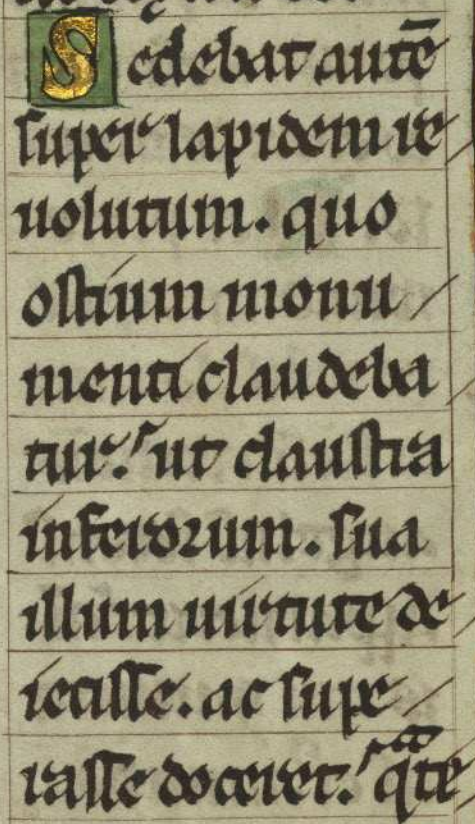 Sedebat autē
super lapidem re
uolutum. quo
ostium monu
menti claudeba
tur. ut claustra
inferorum. sua
illum uirtute de
iecisse. ac supe
rasse doceret.